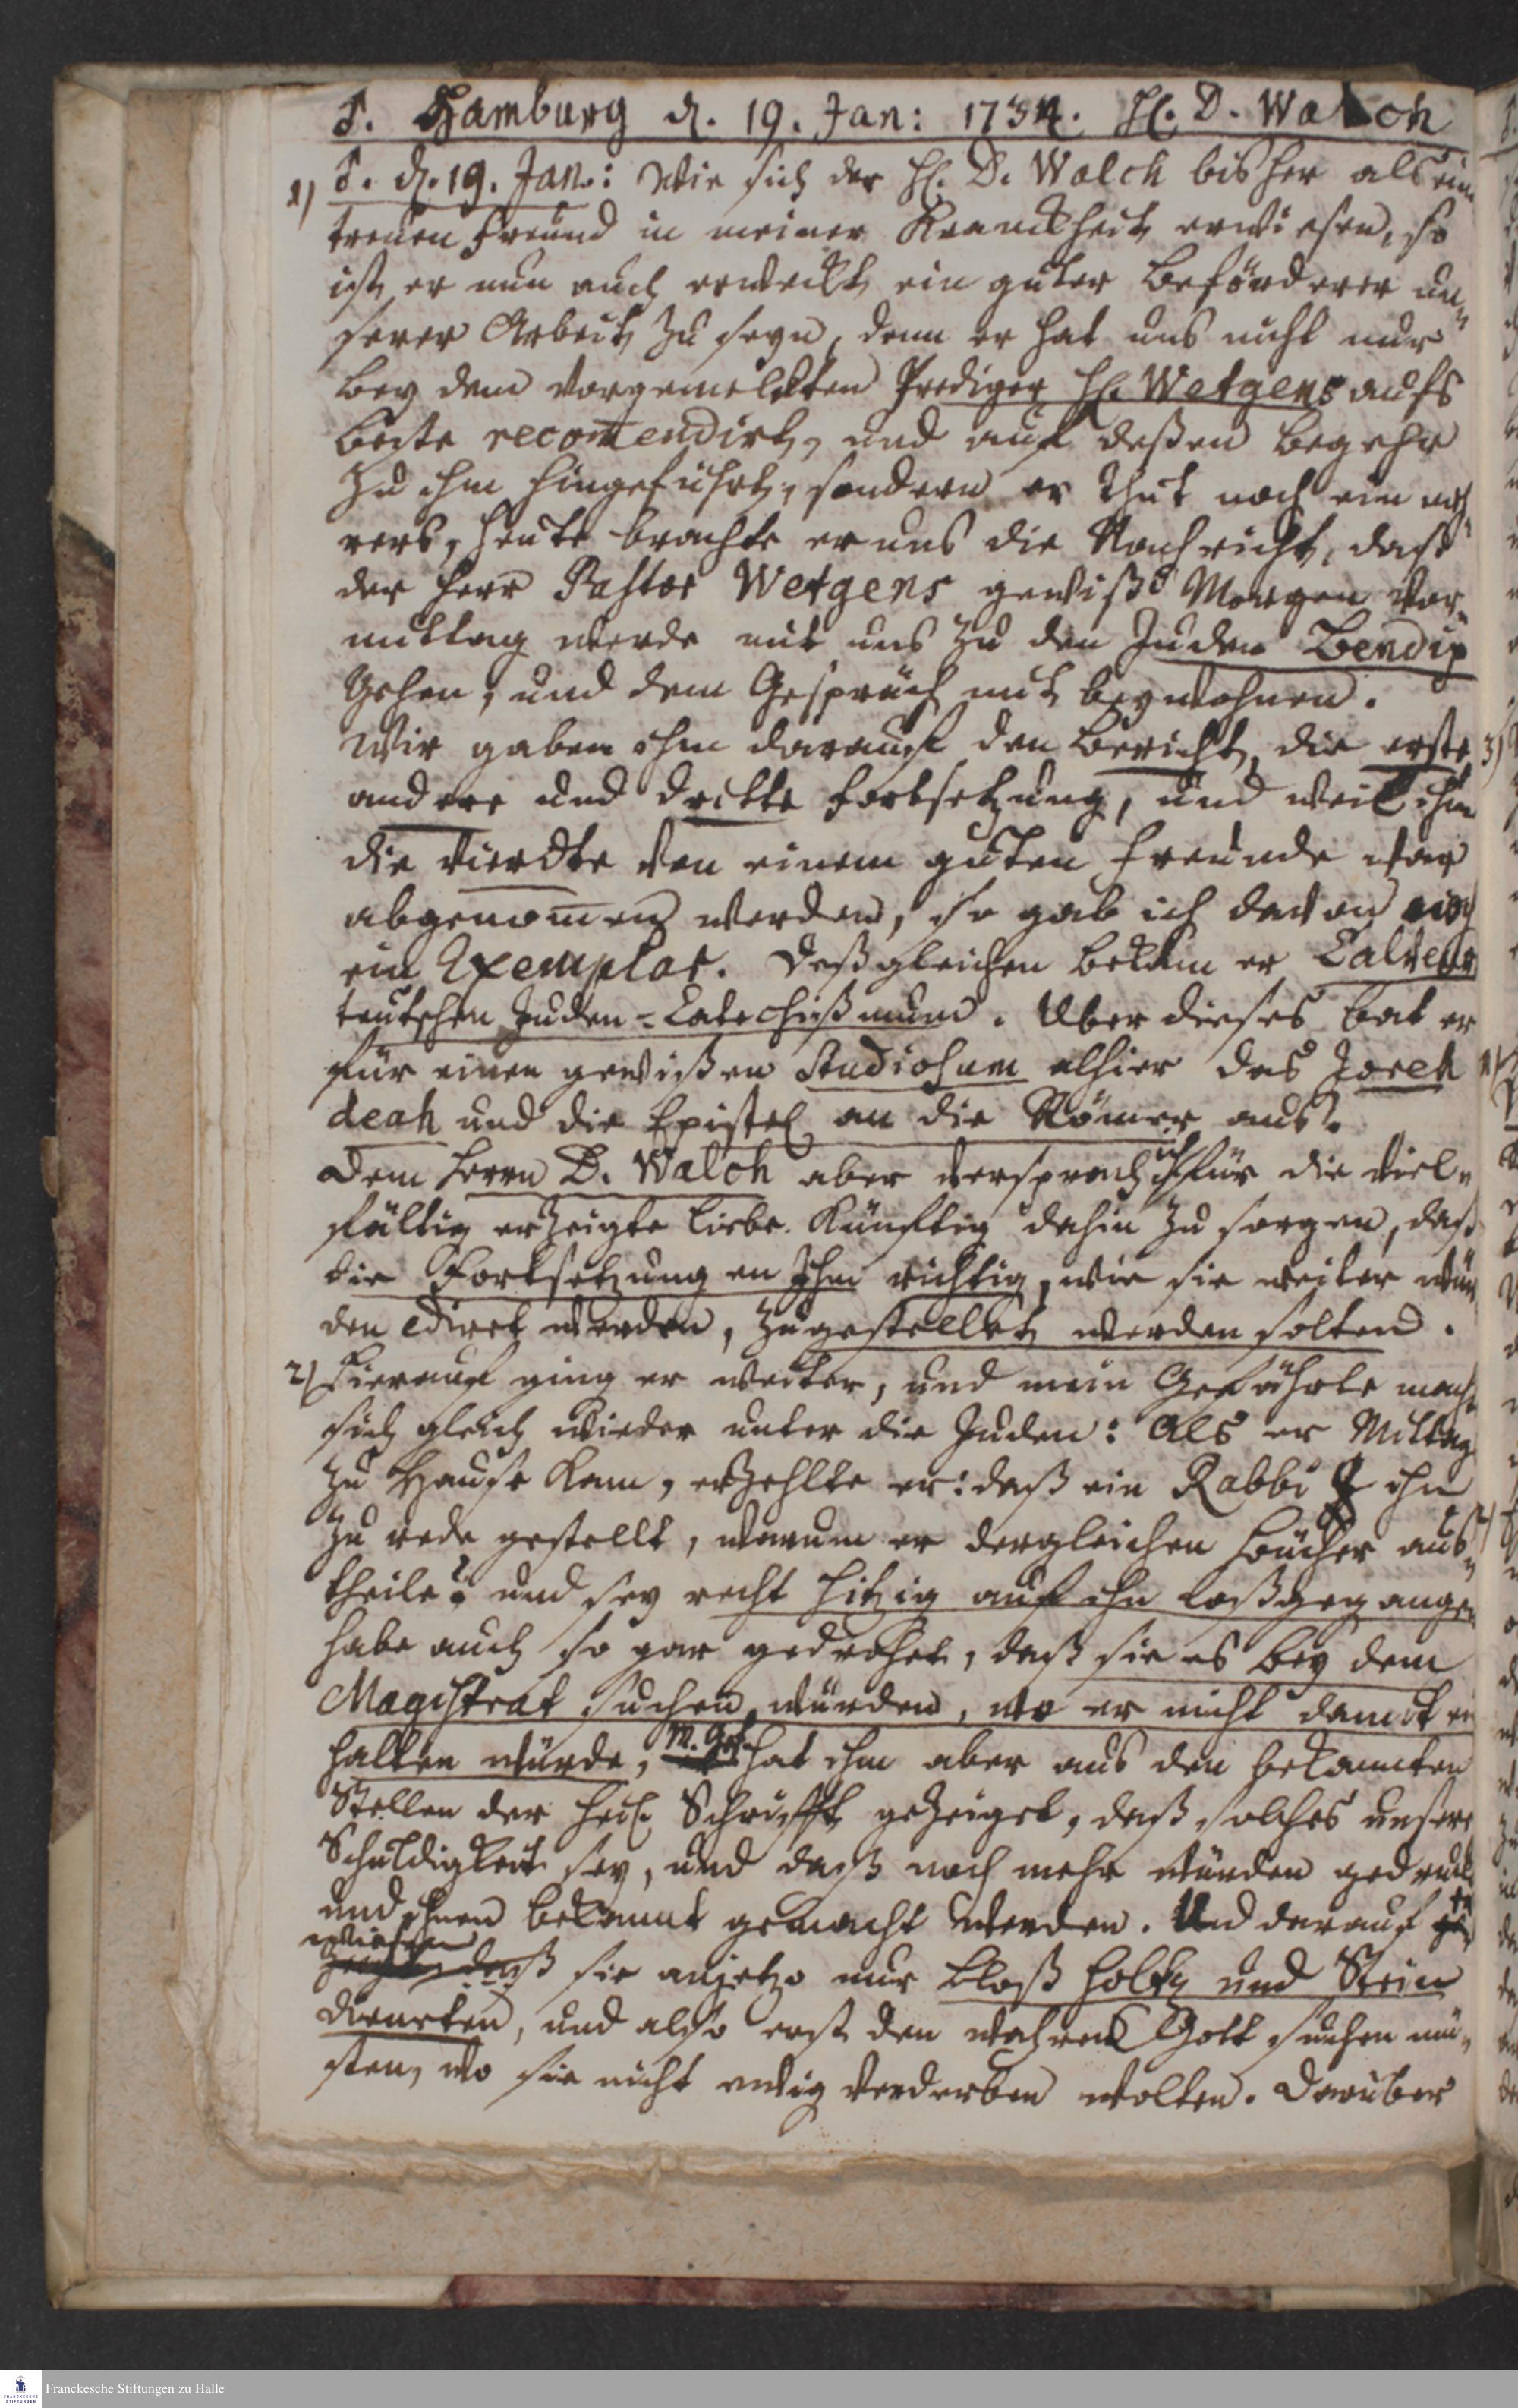 d. Hamburg d. 19. Jan: 1734. H. D. Walch
1) d. d. 19. Jan.: Wie sich der H. D. Walch bisher als ein
treuen Freund in meiner Kranckheit erwiesen, so
ist er nun auch erweckt ein guter Beförderer un„
serer Arbeit zu seyn, denn er hat uns nicht nur
bey dem vorgemeldten Prediger H. Wetgens aufs
beste recom̄endirt, und auf deßen Begehr
zu ihm hingeführt, sondern er thut noch ein meh
rers, heute brachte er uns die Nachricht, daß
der Herr Pastor Wetgens gewiß Morgen Vor„
mittag werde mit uns zu den Juden Bendix
gehen, und dem Gespräch mit beywohnen.
Wir gaben ihm darauf den Bericht, die erste
andere und dritte Fortsetzung, und weil ihm
die vierdte von einem guten Freunde war
abgenom̄en worden, so gab ich davon noch
ein Exemplar. Deßgleichen bekam er Calvers
teutschen Juden-Catechißmum. Uber dieses bat er
für einen gewißen Studiosum alhier das Joreh
deah und die Epistel an die Römer aus.
Dem Herrn D. Walch aber versprach ich für die viel„
fältig erzeigte Liebe künftig dahin zu sorgen, daß
die Fortsetzungen Ihm richtig, wie sie weiter wür
den edirt werden, zugestellet werden solten.
2) Hierauf ging er weiter, und mein Gefährte mach„
sich gleich wieder unter die Juden: Als er Mittag
zu Hause kam, erzehlte er: daß ein Rabbi ihn
zu rede gestellt, warum er dergleichen Bücher aus„
theile? und sey recht hitzig auf ihn loßgegangen
habe auch so gar gedrohet, daß sie es bey dem
Magistrat suchen würden, wo er nicht damit ein
halten würde, M. Gef. hat ihm aber aus den bekannten
Stellen der Heil. Schrifft gezeiget, daß solches unsere
Schuldigkeit sey, und daß noch mehr würden gedruckt
und ihnen bekannt gemacht werden. Und darauf
wiesen daß sie anjetzo nur bloß Holtz und Stein
dieneten, und also erst den wahren Gott suchen mü„
sten, wo sie nicht ewig verderben wolten. Darüber
Franckesche Stiftungen zu Halle